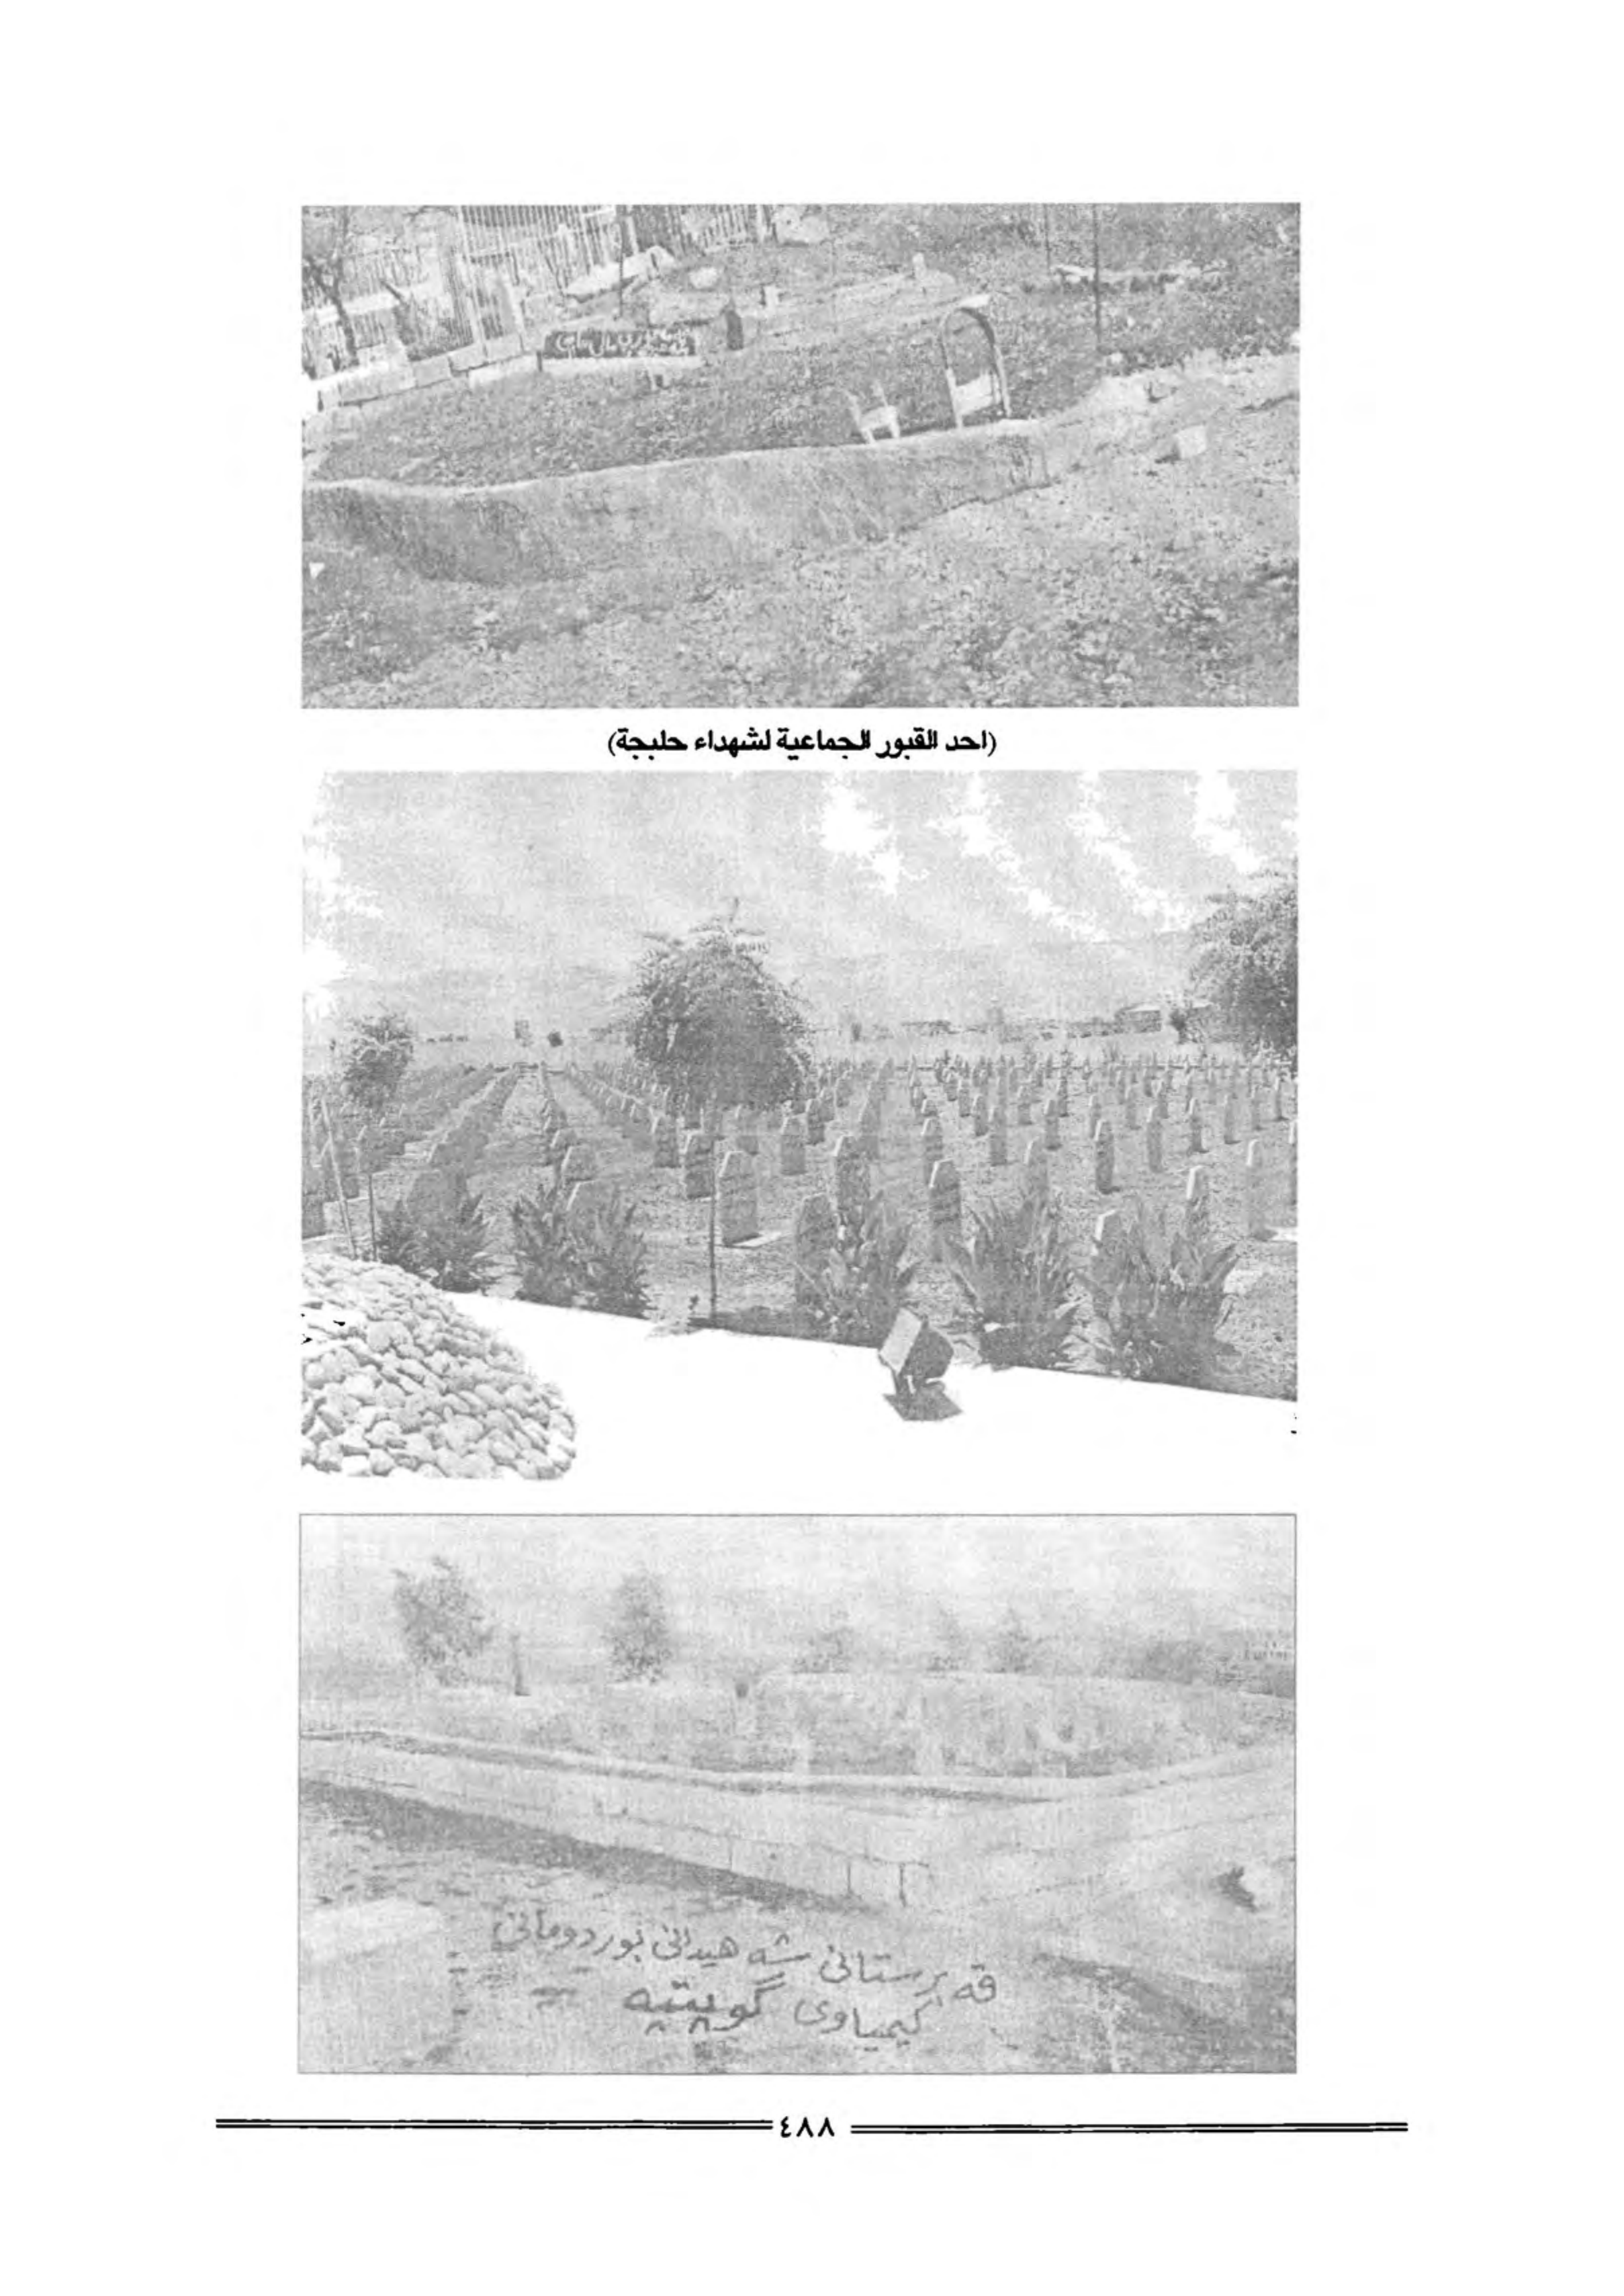 (احد القبور الجماعية لشهداء حلبجة)
قه برستانی شه هیدانی بوردومانی
کیمیاوی گوپتپه
٤٨٨